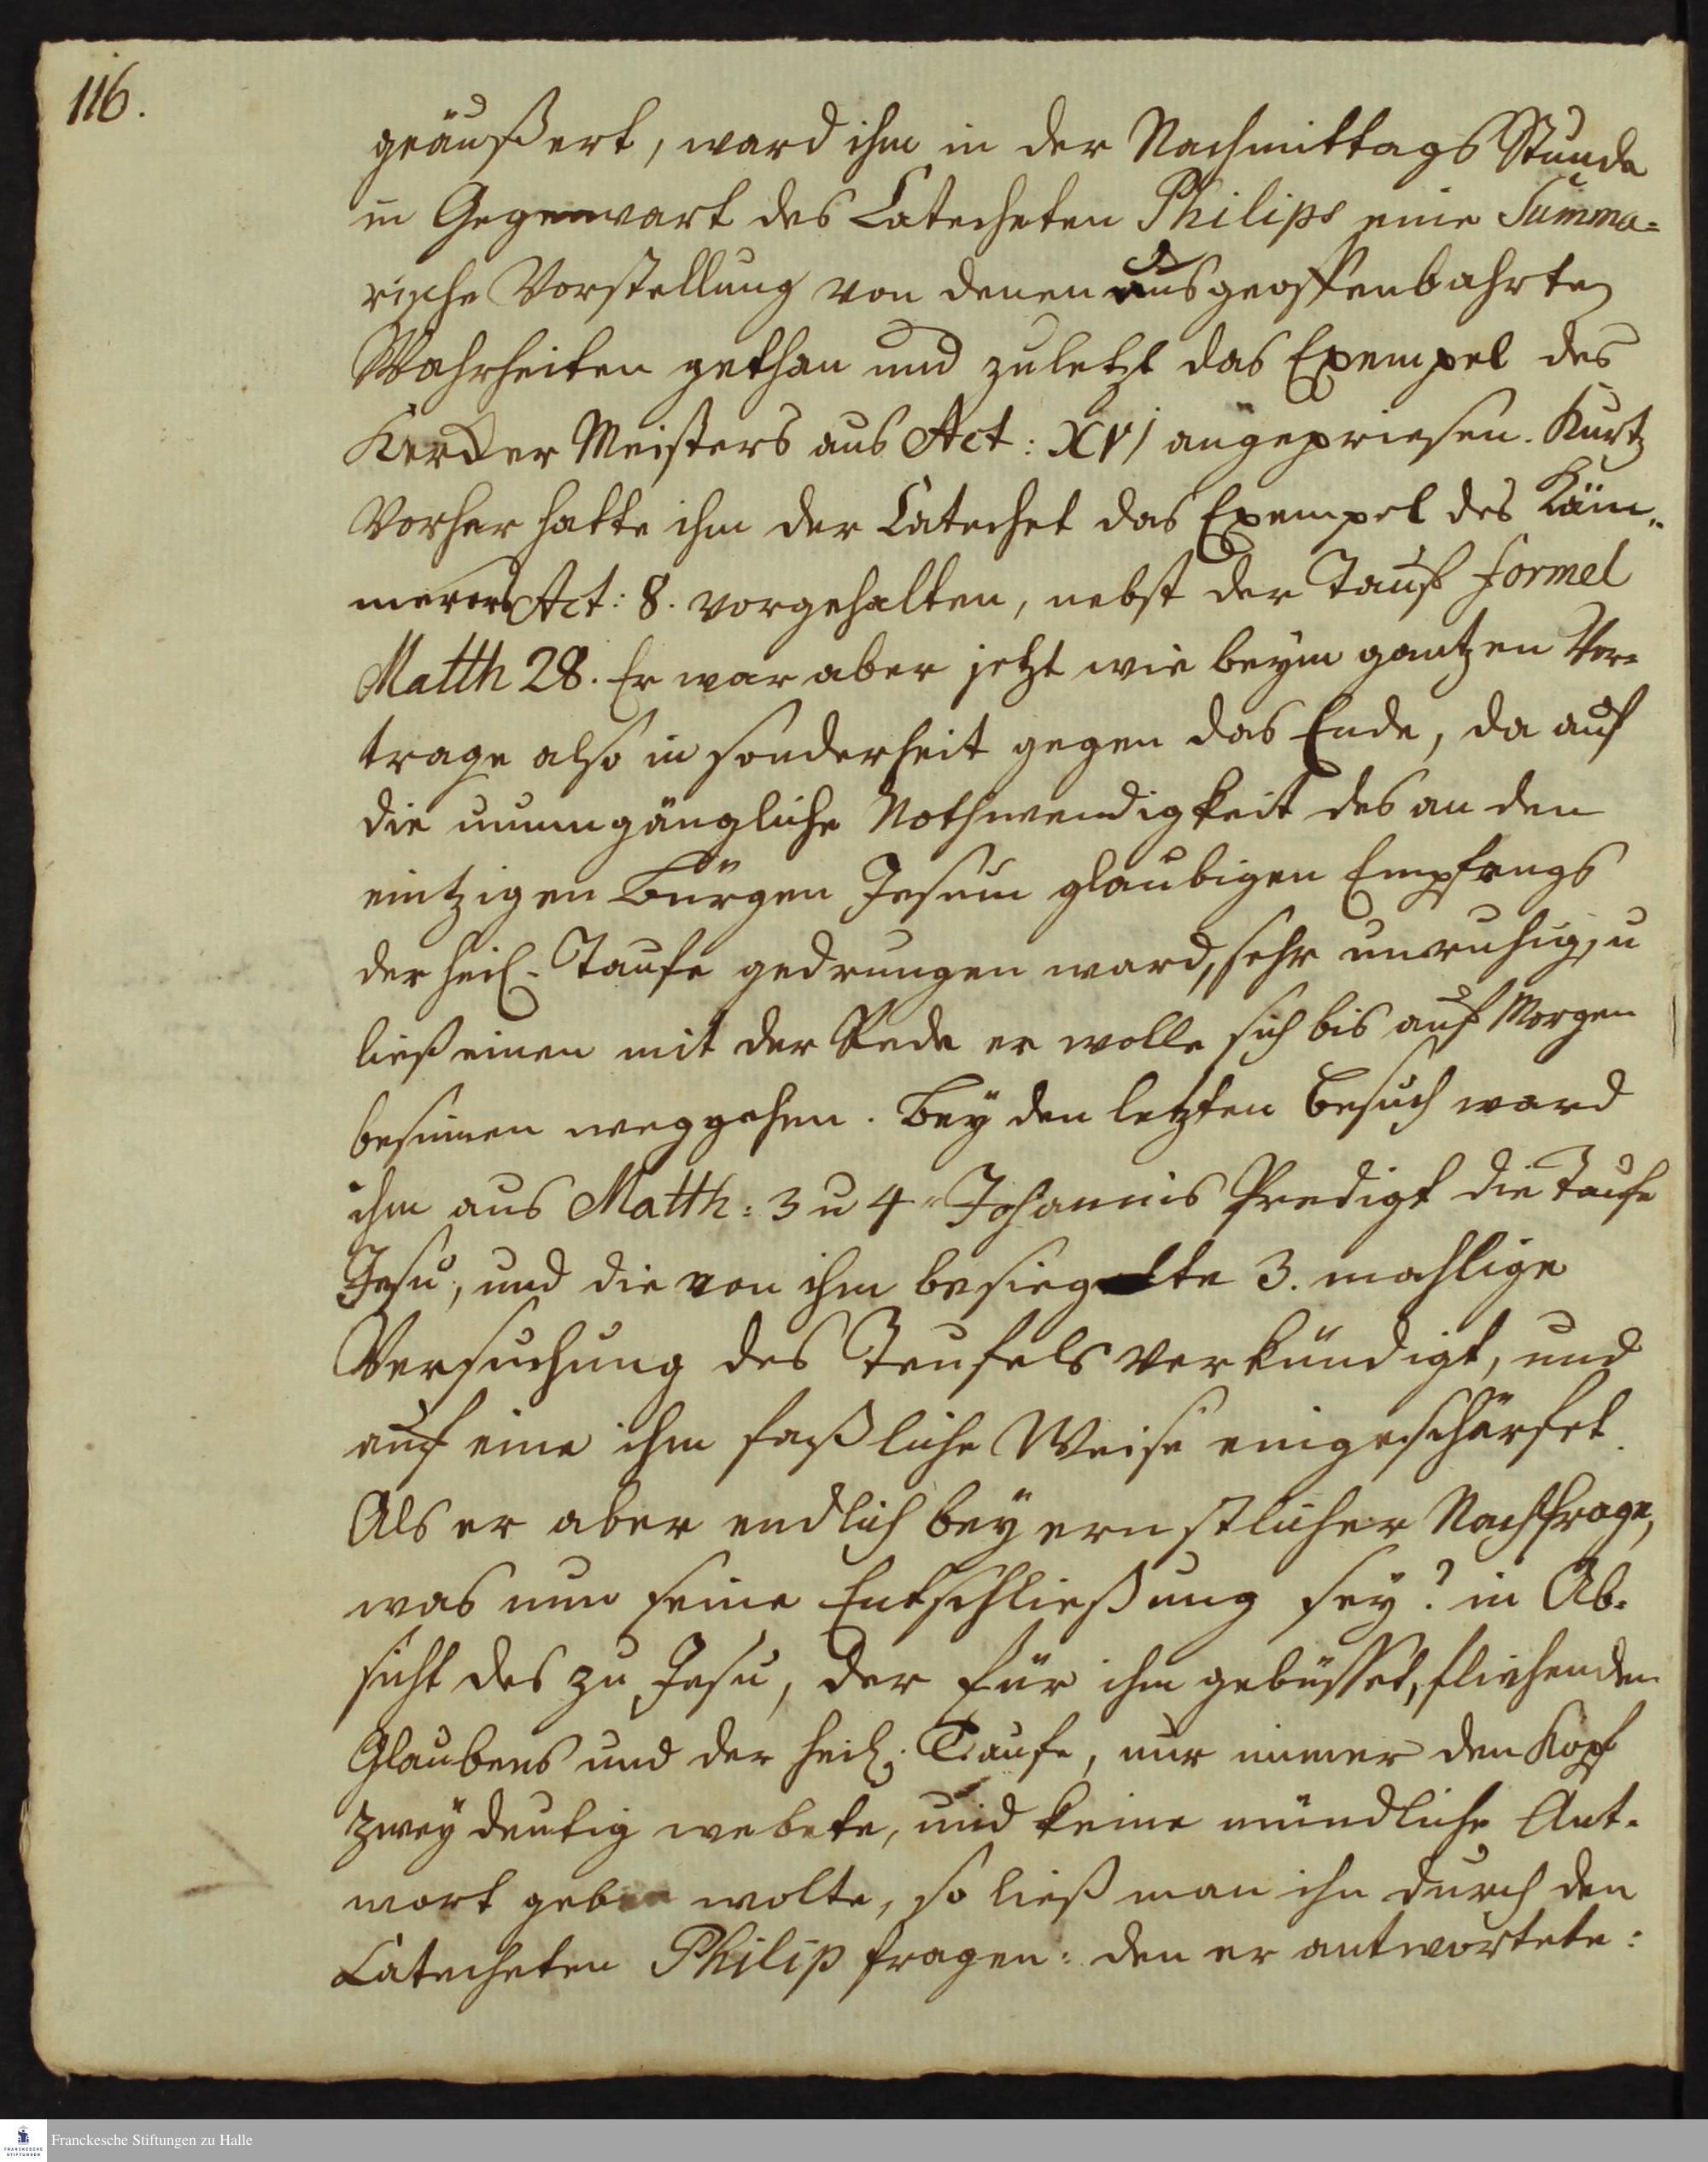 116.
geäußert, ward ihm in der Nachmittags Stunde
in Gegenwart des Catecheten Philips eine Summa=
rische Vorstellung von denen uns geoffenbahrten
Wahrheiten gethan und zuletzt das Exempel des
Kercker Meisters aus Act: XVI angepriesen. Kurtz
vorher hatte ihm der Catechet das Exempel des Käm=
merers Act: 8. vorgehalten, nebst der Tauf formel
Matth 28. Er war aber jetzt wie beym gantzen Vor=
trage also in sonderheit gegen das Ende, da auf
die unumgängliche Nothwendigkeit des an den
eintzigen Bürgen Jesum glaubigen Empfangs
der heil. Taufe gedrungen ward, sehr unruhig, u
ließ einen mit der Rede er wolle sich bis auf Morgen
besinnen weggehen. Bey den letzten Besuch ward
ihm aus Matth: 3 u 4. Johannis Predigt die Taufe
Jesu, und die von ihm besiegte 3. mahlige
Versuchung des Teufels verkündigt, und
auf eine ihm faßliche Weise eingeschärfet.
Als er aber endlich bey ernstlicher Nachfrage,
was nun seine Entschließung sey? in Ab=
sicht des zu Jesu, der für ihm gebüsset, fliehenden
Glaubens und der heil. Taufe, nur immer den Kopf
zweydeutig webete, und keine mündliche Ant=
wort geben wolte, so ließ man ihn durch den
Catecheten Philip fragen: den er antwortete:
Franckesche Stiftungen zu Halle
FRANCKESCHE
STIFTUNGEN